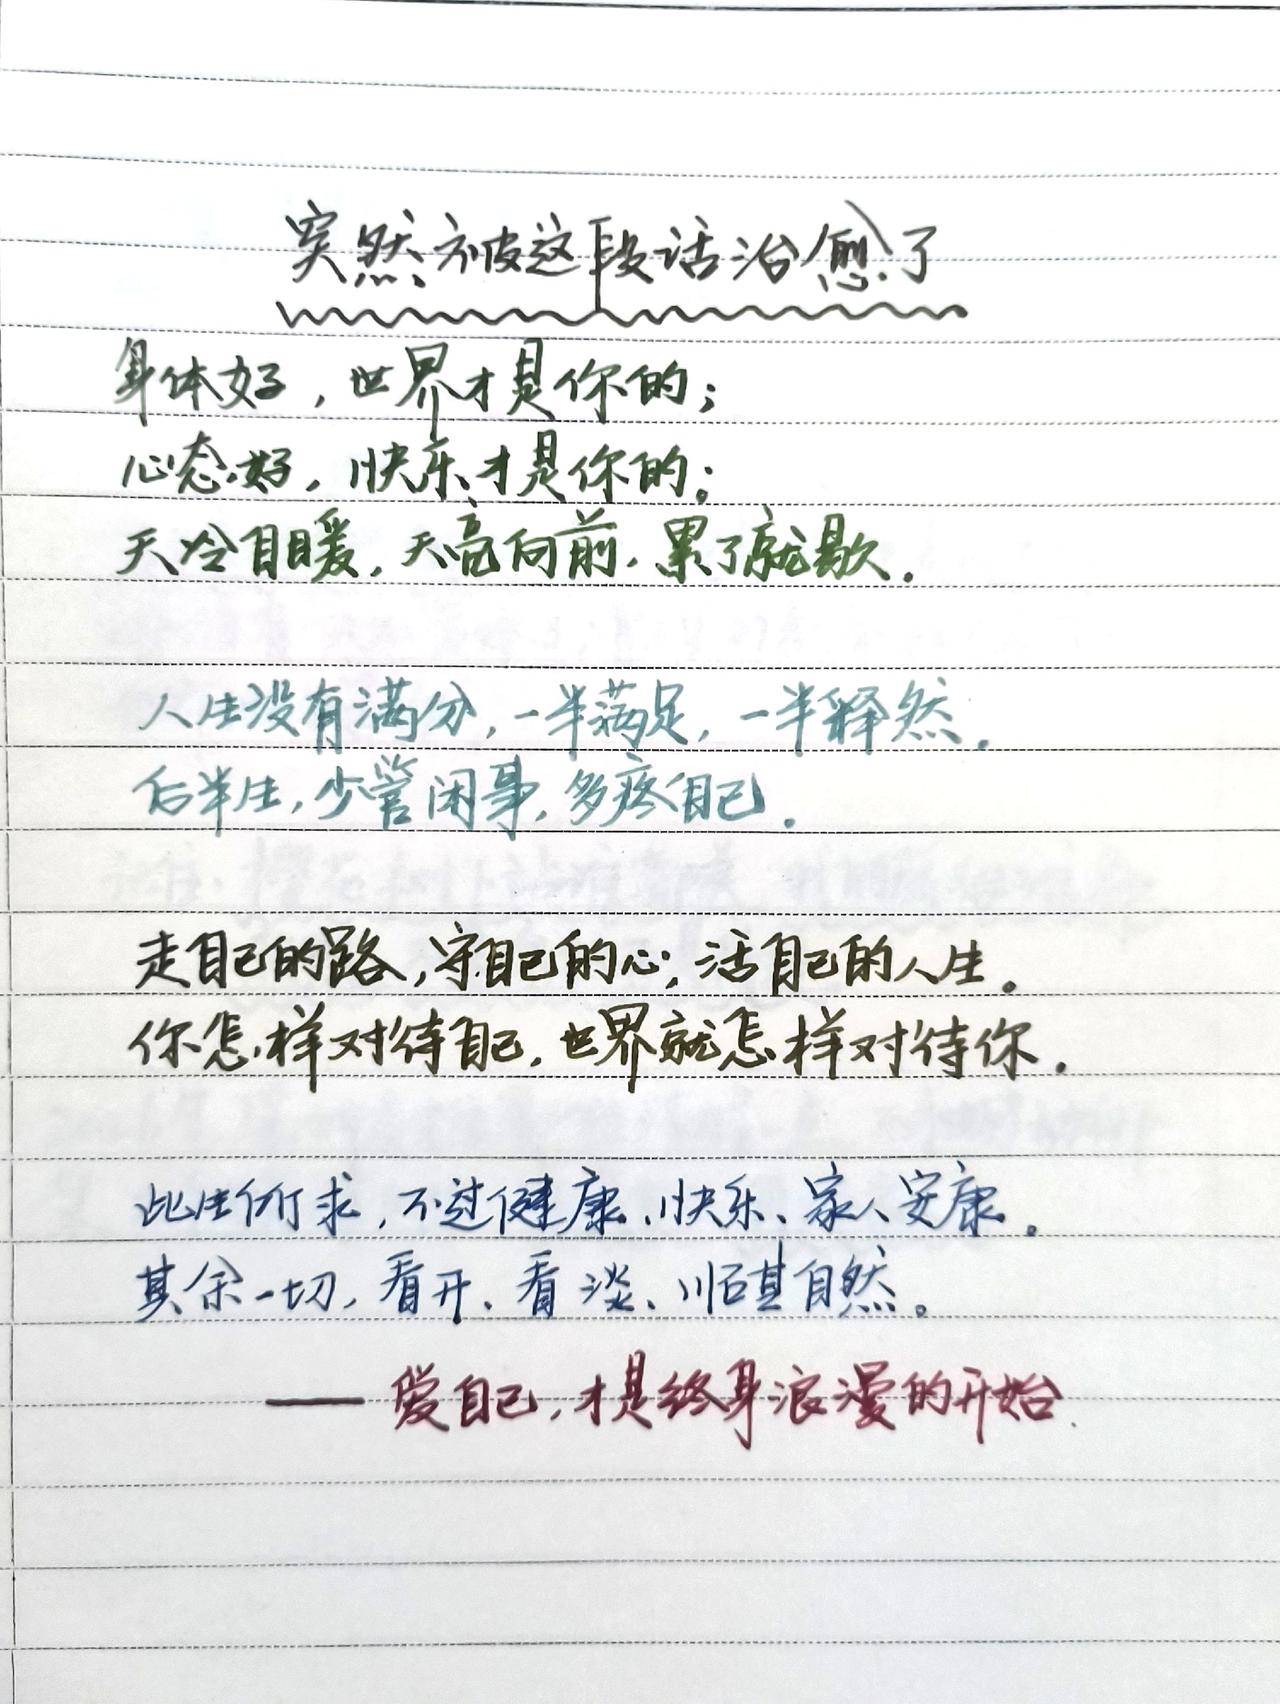 突然被这段话治愈了
身体好，世界才是你的；
心态好，快乐才是你的；
天冷自暖，天亮向前，累了就歇。
人生没有满分，一半满足，一半释然。
后半生，少管闲事，多疼自己。
走自己的路，守自己的心，活自己的人生。
你怎样对待自己，世界就怎样对待你。
此生所求，不过健康、快乐、家人安康。
其余一切，看开、看淡、顺其自然。
——爱自己，才是终身浪漫的开始.